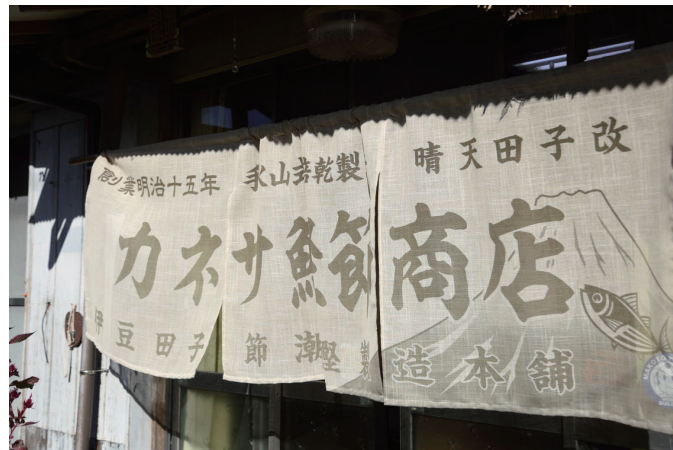 創業明治十五年 氷山節乾製 晴天田子改
カネサ魚節商店
伊豆田子節 潮堅 製造本舗